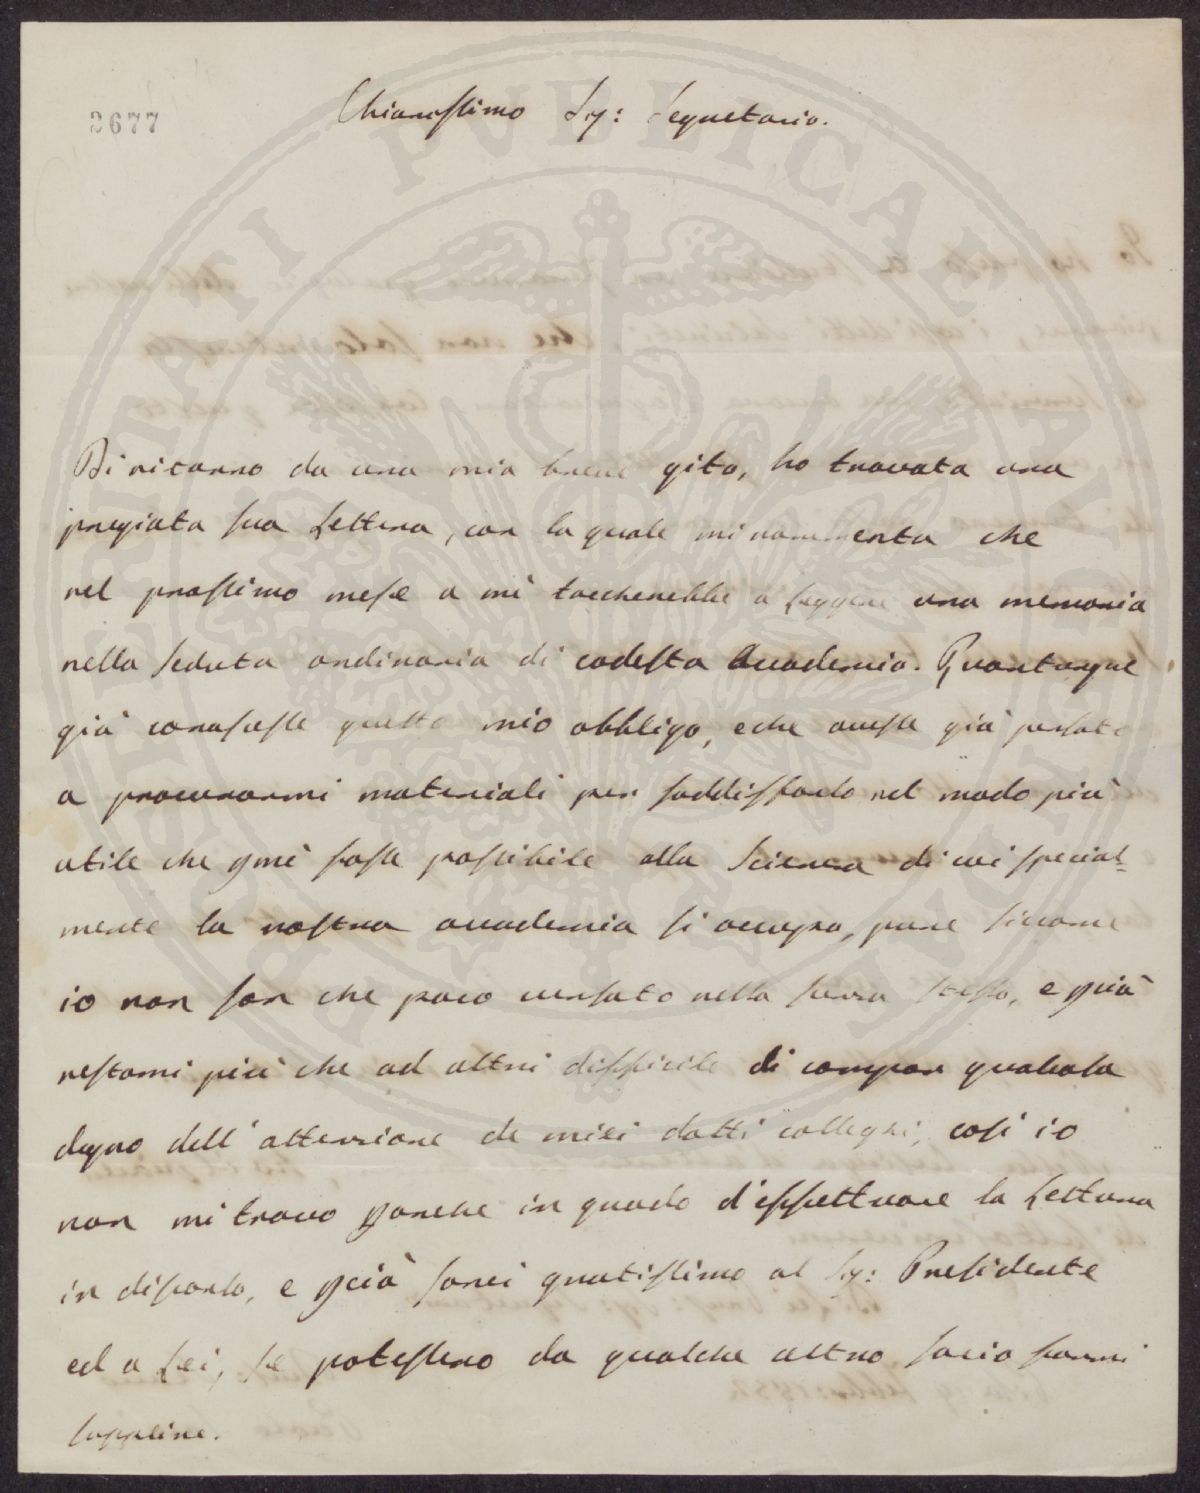 3677
Chiarissimo Sig: Segretario.
Di ritorno da una mia breve gita, ho trovata una
pregiata sua Lettera, con la quale mi rammenta che
nel prossimo mese a mè toccherebbe a leggere una memoria
nella seduta ordinaria di codesta Accademia. Quantunque
già conoscesse questo mio obbligo, e che avesse già pensato
a procurarmi materiali per soddisfarlo nel modo più
utile che p mè fosse possibile alla Scienza di cui special-
mente la nostra accademia si occupa, pure siccome
io non son che poco versato nella stessa, e p ciò
restami più che ad altri difficile di compor qualcosa
degno dell' attenzione de miei dotti colleghi, così io
non mi trovo p anche in grado d'effettuare la Lettura
in discorso, e p ciò sarei gratissimo al Sig: Presidente
ed a Lei, se potessero da qualche altro socio farmi
supplire.